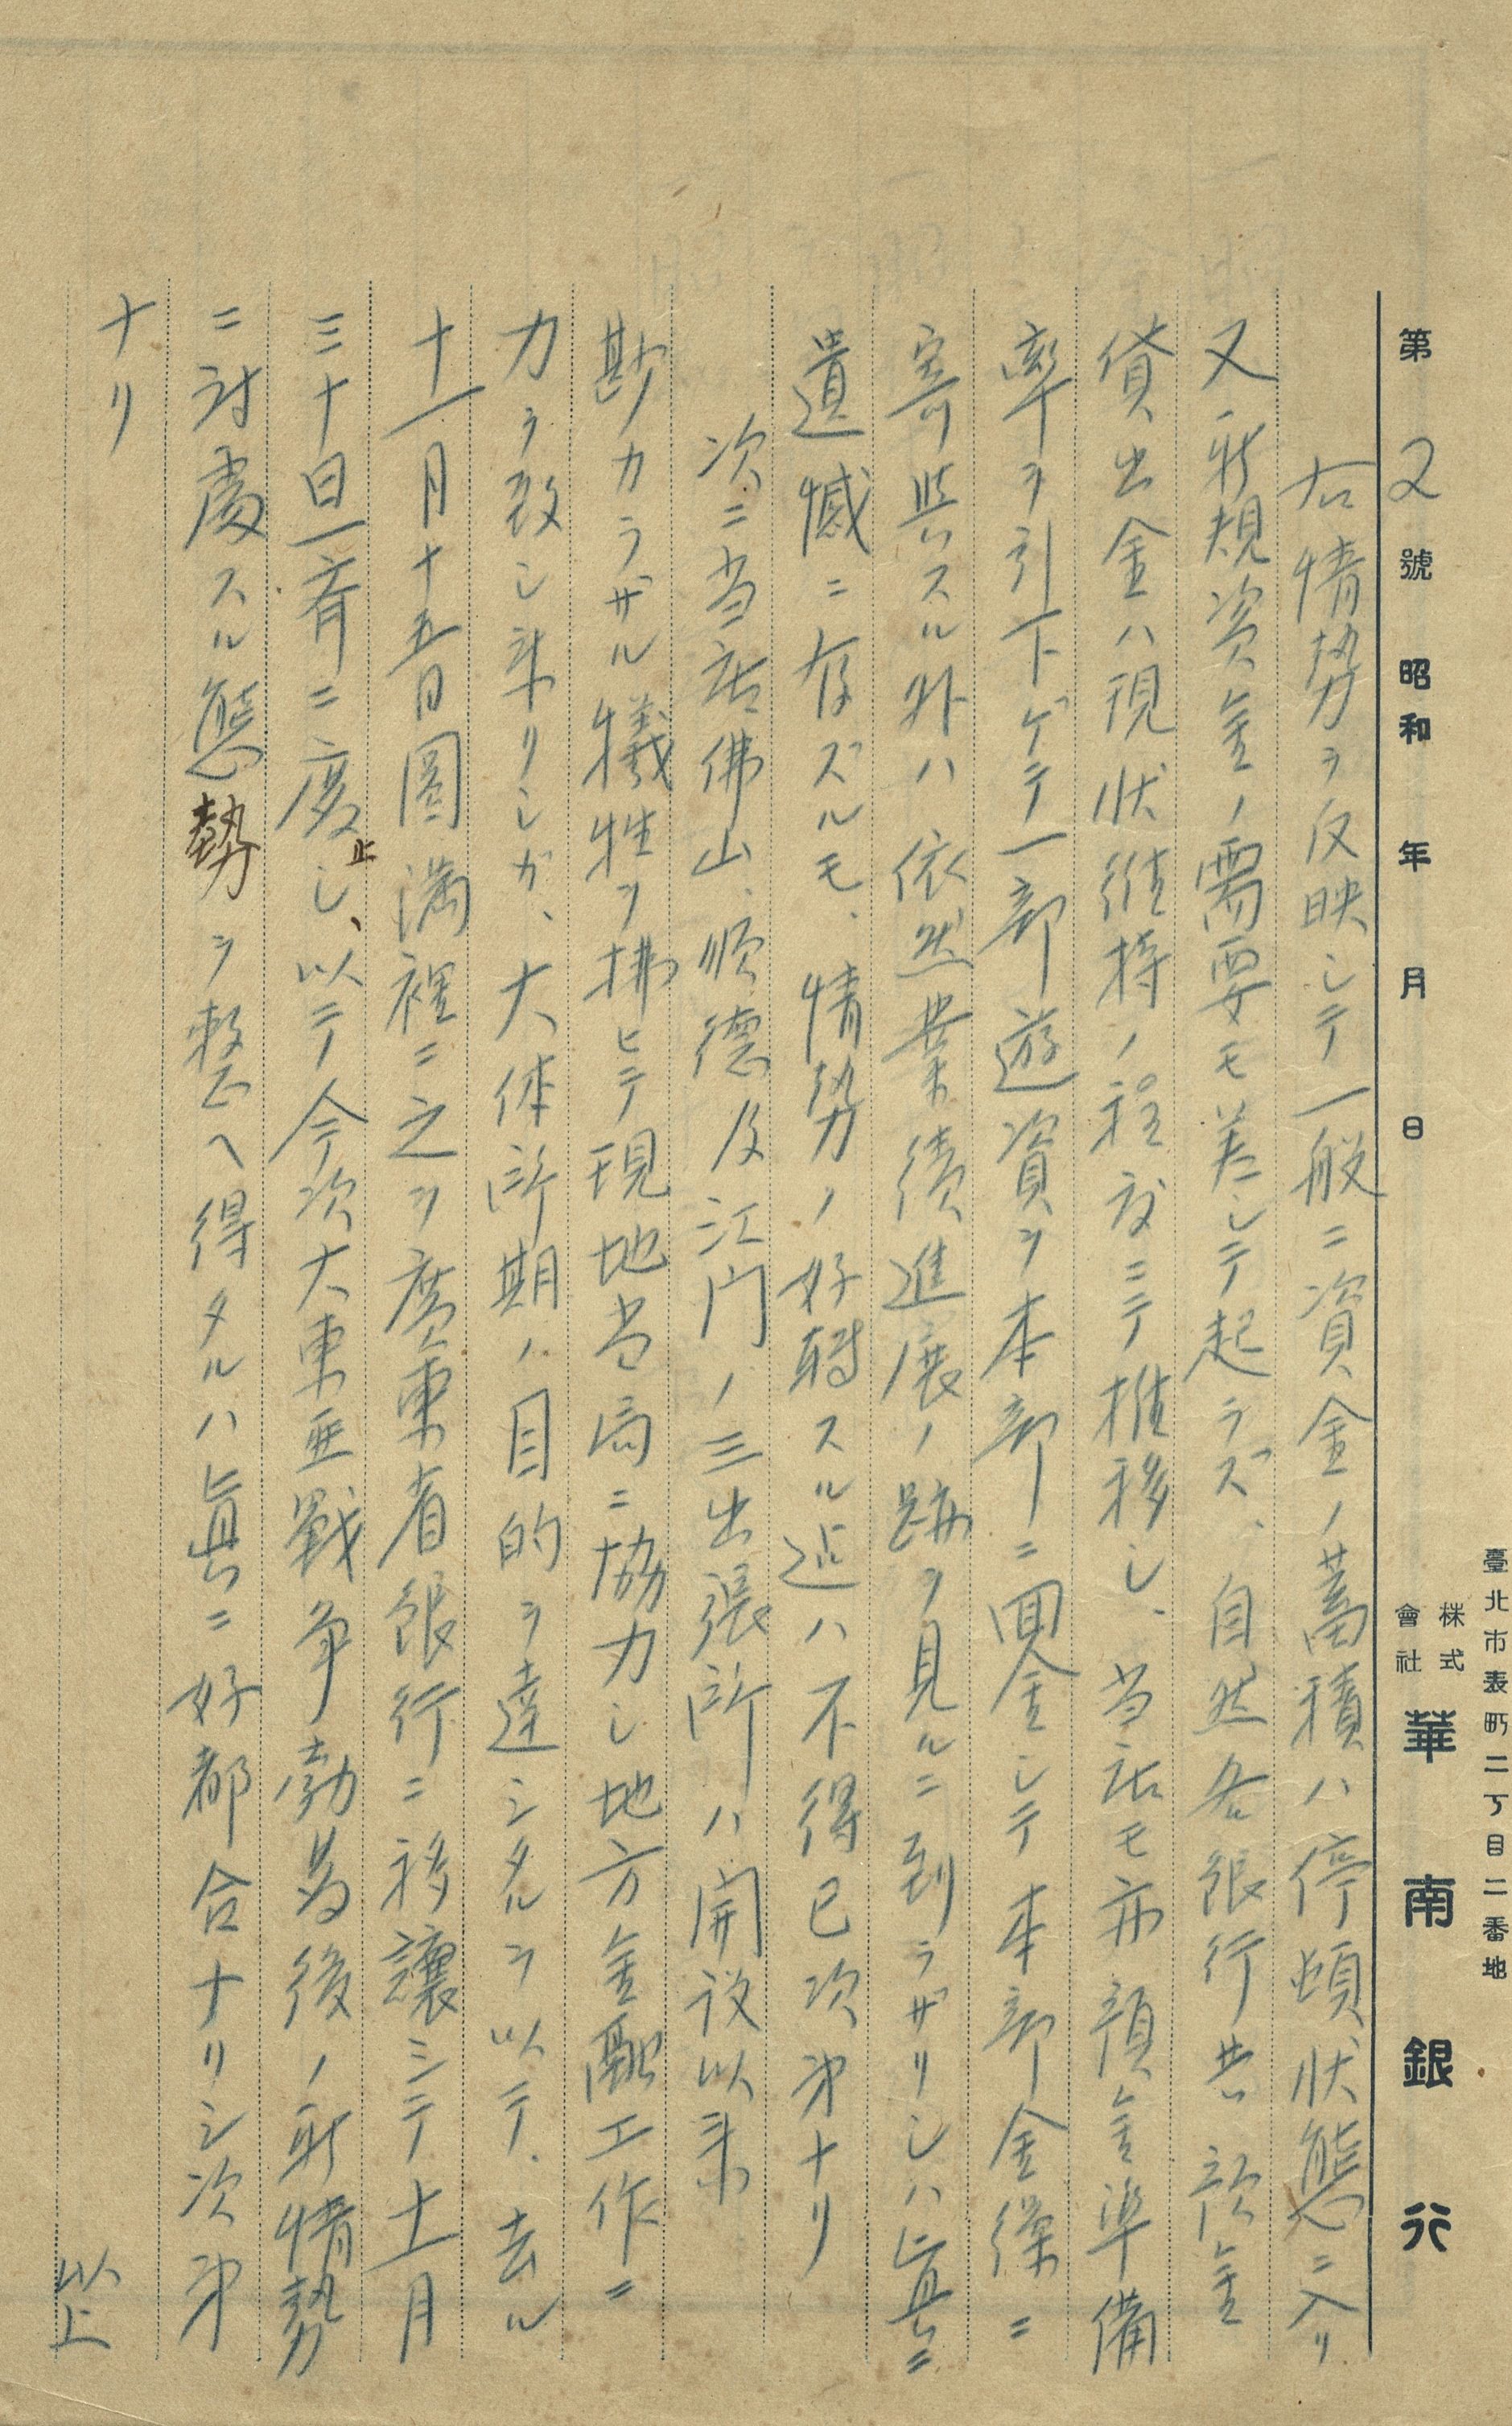 臺北市表町二丁目二番地
株式會社 華南銀行
第 2 號 昭和 年 月 日
右情勢ヲ反映シテ一般ニ資金ノ蓄積ハ停頓状態ニ入リ
又新規資金ノ需要モ差シテ起ラズ、自然各銀行共預金
貸出金ハ現状維持ノ程度ニテ推移シ、当店モ亦預金準備
率ヲ引下ゲテ一部遊資ヲ本部ニ回金シテ本部金繰ニ
寄与スル外ハ依然業績進展ノ跡ヲ見ルニ到ラザリシハ真ニ
遺憾ニ存ズルモ、情勢ノ好転スル迄ハ不得已次第ナリ
次ニ当店佛山、順徳及江門ノ三出張所ハ開設以来
尠カラザル犠牲ヲ拂ヒテ現地当局ニ協力シ地方金融工作ニ
力ヲ致シ来リシガ、大体所期ノ目的ヲ達シタルヲ以テ、去ル
十一月十五日圓満裡ニ之ヲ廣東省銀行ニ移譲シテ十一月
三十日一斉ニ廃止シ、以テ今次大東亜戦争勃発後ノ新情勢
ニ対處スル態勢ヲ整ヘ得タルハ真ニ好都合ナリシ次第
ナリ
以上